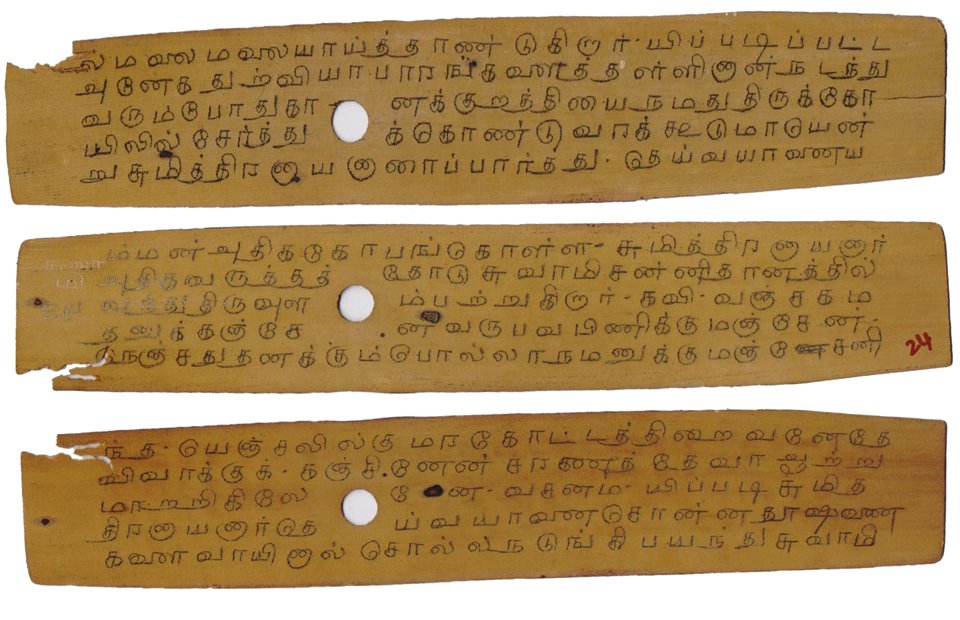 ல மலை மலையாய்த்தாண் டுகிறார். யிப் படிப்பட்ட
அனேக துற்வியாபாரங்களைத்தள்ளினான் நடந்து
வரும்போதுகா னக்குறத்தியைநமதுதிருக்கோ
யிலில் சேர்த்து க்கொண்டுவரக்கூடுமாயென்
று சுமித்திரனாயனாரைப்பார்த்து. தெய்வயாவணைய
ம்மன் அதிககோபங்கொள்ள- சுமித்திரனாயனார்
அதிகவருத்தத் தோடு சுவாமிசன்னிதானத்தில்
வந்துதிருவுள ம்பற்றுகிறார். கவி. வஞ்சகம
னுக்கஞ்சே ன் வருபவபிணிக்குமஞ்சேன்.
நஞ்சதுதனக்கும்பொல்லாநமனுக்குமஞ்சேசனி
ந்த. யெஞ்சலில்குமரகோட்டத்திறைவனேதே
விவாக்குக். கஞ்சினேன் சரணைத் தேவா ஆற்று
மாறறிகிலே னே- வசனம். யிப்படி சுமித்
திரனாயனார்தெ ய்வயாவணைசொன்னதூஷணை
களைவாயினால் சொல்லநடுங்கி பயந்து சுவாமி
24